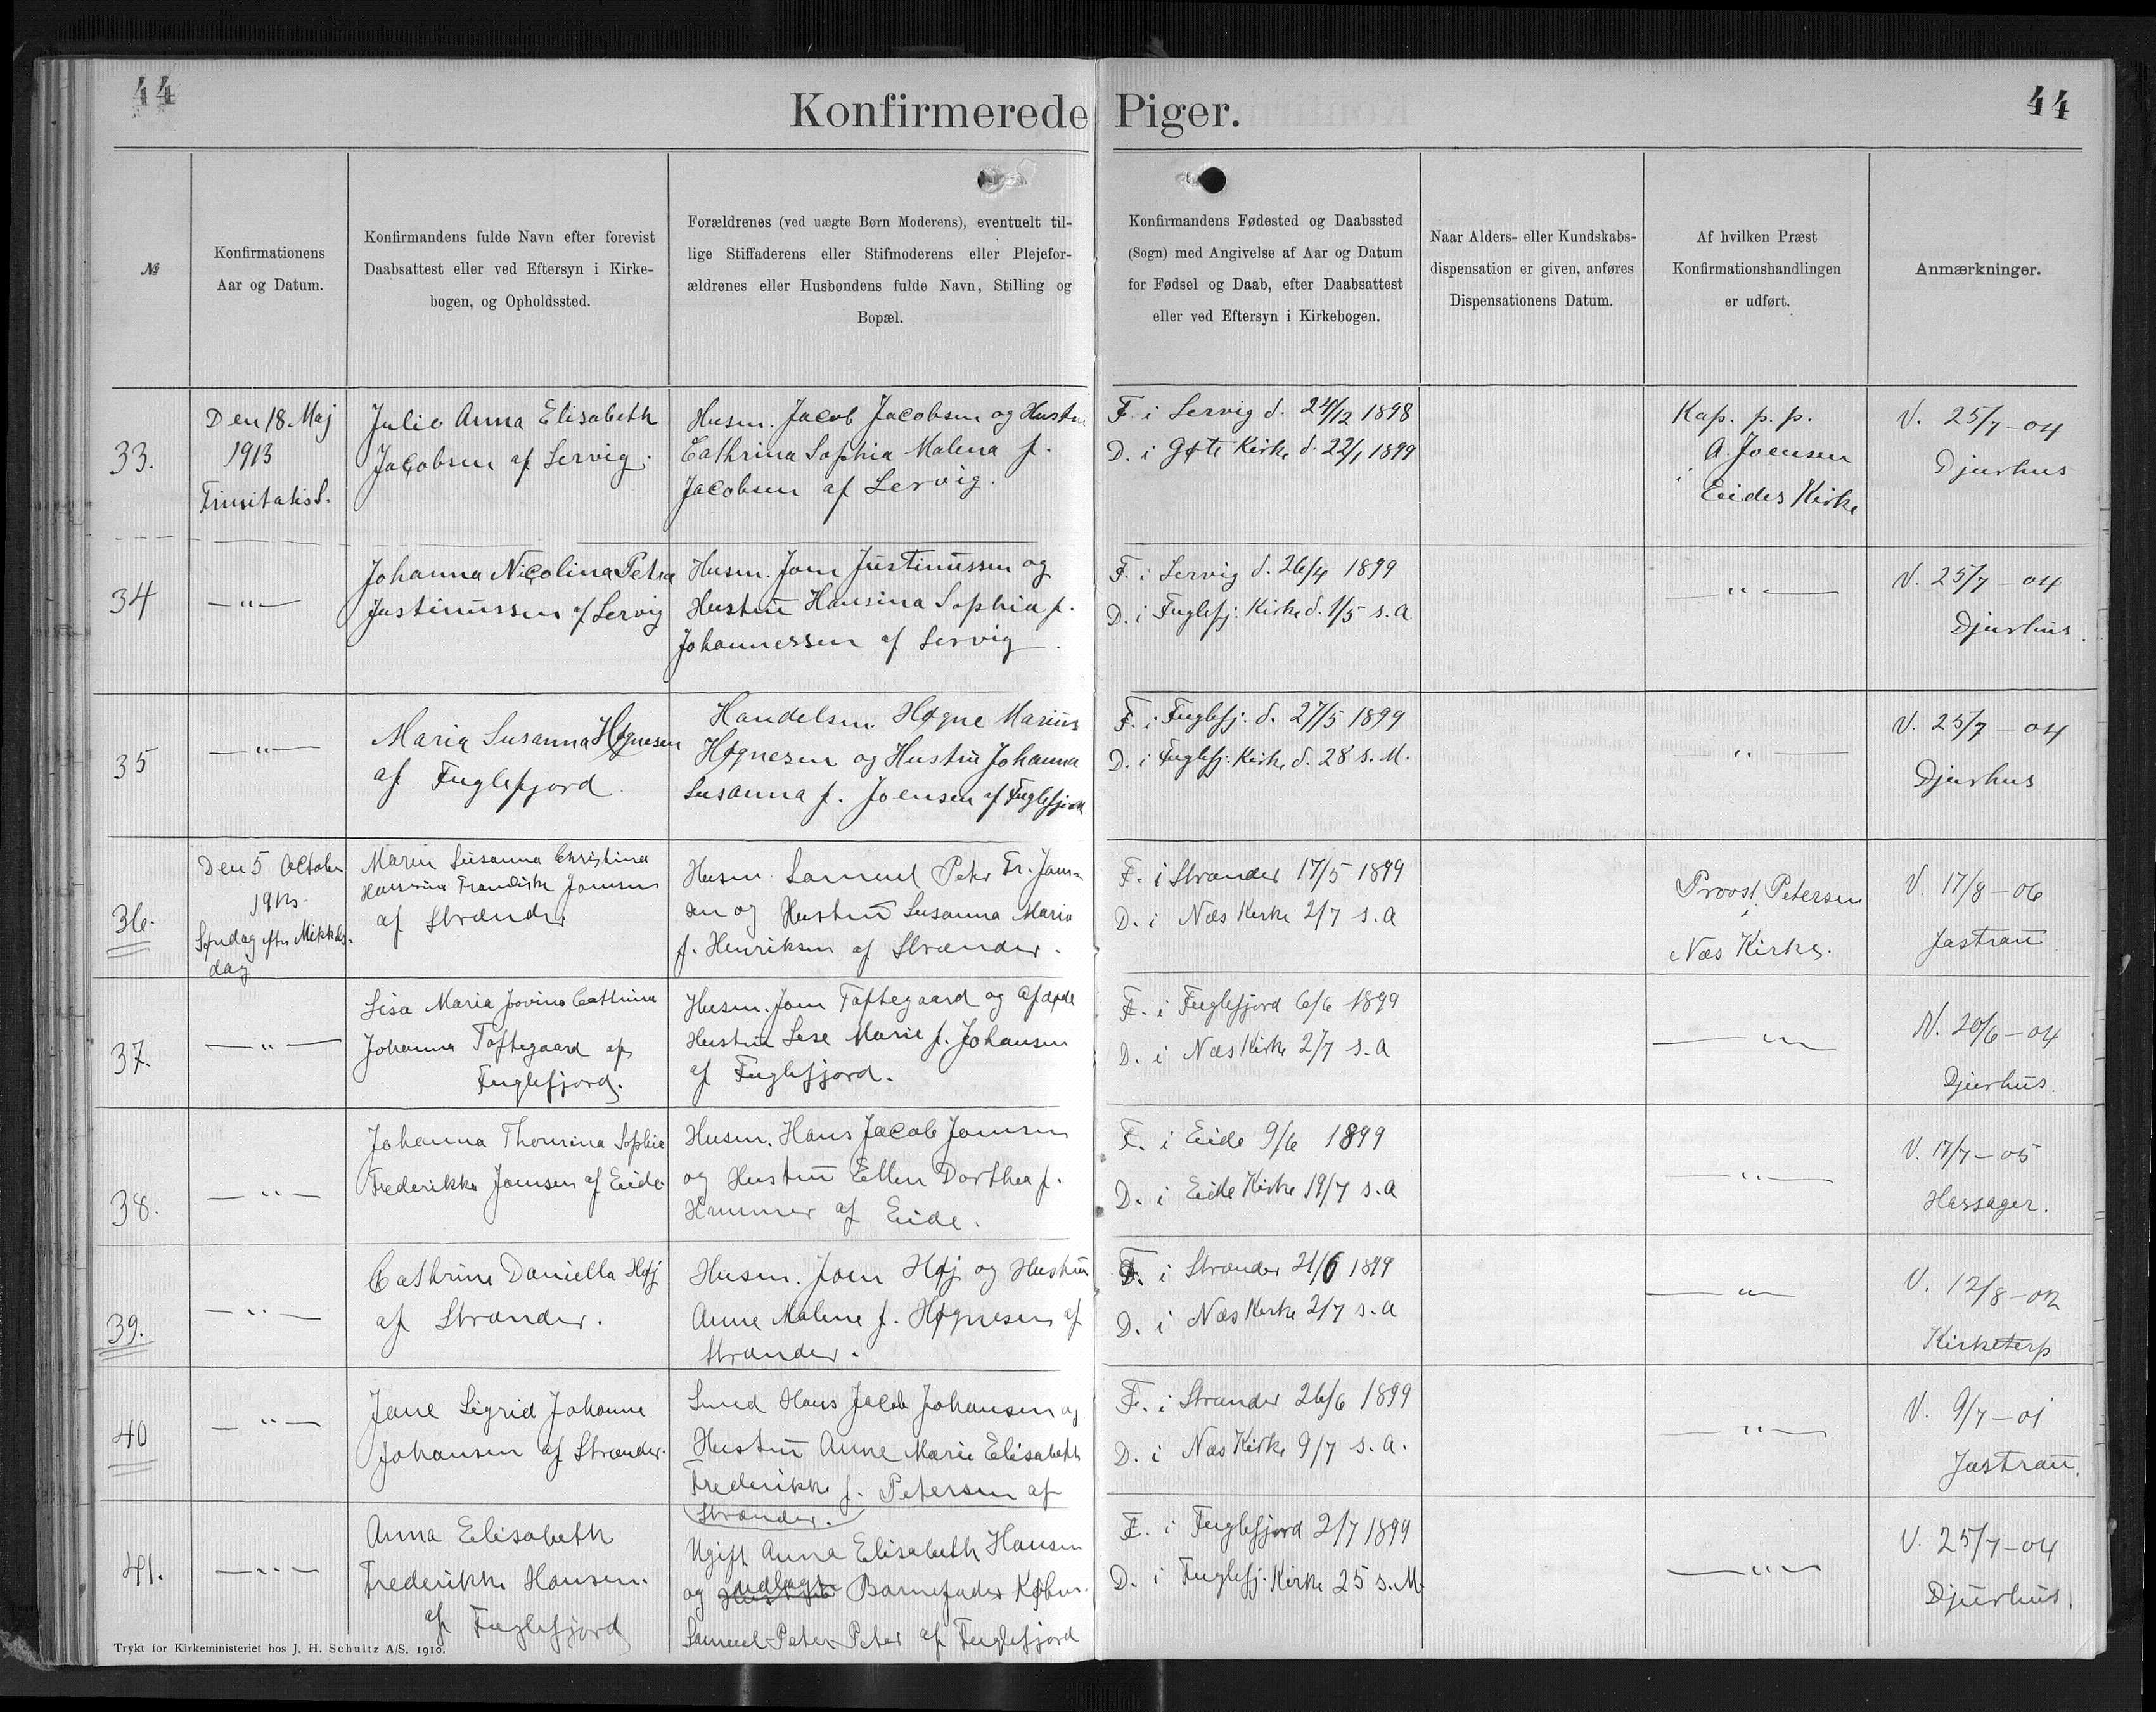 44
44
Konfirmerede Piger.
№
Konfirmationens
Aar og Datum.
Konfirmandens fulde Navn efter forevist
Daabsattest eller ved Eftersyn i Kirke-
bogen, og Opholdssted.
Forældrenes (ved uægte Børn Moderens), eventuelt til-
lige Stiffaderens eller Stifmoderens eller Plejefor-
ældrenes eller Husbondens fulde Navn, Stilling og
Bopæl.
Konfirmandens Fødested og Daabssted
(Sogn) med Angivelse af Aar og Datum
for Fødsel og Daab, efter Daabsattest
eller ved Eftersyn i Kirkebogen.
Naar Alders- eller Kundskabs-
dispensation er given, anføres
Dispensationens Datum.
Af hvilken Præst
Konfirmationshandlingen
er udført.
Anmærkninger.
33.
Den 18 Maj
1913
Trinitatis S.
Julie Anna Elisabeth
Jacobsen af Lervig.
Husm. Jacob Jacobsen og Hustru
Cathrina Sophia Malena f.
Jacobsen af Lervig.
F. i Lervig d. 24/12 1898
D. i Gøte Kirke d. 22/1 1899
Kap. p. p.
A. Joensen
i Eides Kirke
V. 25/7-04
Djurhus
34
—"—
Johanna Nicolina Petra
Justinussen af Lervig
Husm. Joen Justinussen og
Hustru Hansina Sophia f.
Johannessen af Lervig.
F. i Lervig d. 26/4 1899
D. i Fuglefj. Kirke d. 1/5 s. A
—"—
V. 25/7-04
Djurhus.
35
—"—
Maria Susanna Høgnesen
af Fuglefjord
Handelsm. Høgne Marius
Høgnesen og Hustru Johanna
Susanna f. Joensen af Fuglefjord
F. i Fuglefj. d. 27/5 1899
D. i Fuglefj. Kirke d. 28 s. M.
—"—
V. 25/7-04
Djurhus
36.
Den 5 October
1913
Søndag efter Mikkels-
dag
Maren Susanna Christina
Joensen
af Strænder
Husm. Samuel Peter Fr. Joen-
sen og Hustru Susanna Maria
f. Henriksen af Strænder.
F. i Strænder 17/5 1899
D. i Næs Kirke 2/7 s. A
Provst Petersen
i
Næs Kirke.
V. 17/8-06
Jastrau.
37.
—"—
Lisa Maria Jovina Cathrina
Johanna Toftegaard af
Fuglefjord.
Husm. Joen Toftegaard og afdøde
Hustru Lise Marie f. Johansen
af Fuglefjord.
F. i Fuglefjord 6/6 1899
D. i Næs Kirke 2/7 s. A
—"—
V. 20/6-04
Djurhus.
38.
—"—
Johanna Thomina Sophie
Frederikke Joensen af Eide
Husm. Hans Jacob Joensen
og Hustru Ellen Dorthea f.
Hammer af Eide.
F. i Eide 9/6 1899
D. i Eide Kirke 19/7 s. A
—"—
V. 17/7-05
Hassager.
39.
—"—
Cathrine Daniella Høj
af Strænder.
Husm. Joen Høj og Hustru
Anne Malene f. Høgnesen af
Strænder.
F. i Strænder 21/6 1899
D. i Næs Kirke 2/7 s. A
—"—
V. 12/8-02
Kirketerp
40
—"—
Jane Sigrid Johanne
Johansen af Strænder.
Smed Hans Jacob Johansen og
Hustru Anne Marie Elisabeth
Frederikke f. Petersen af
Strænder.
F. i Strænder 26/6 1899
D. i Næs Kirke 9/7 s. A.
—"—
V. 9/7-01
Jastrau.
41.
—"—
Anna Elisabeth
Frederikke Hansen.
af Fuglefjord
Ugift Anna Elisabeth Hansen
og udlagt Barnefader Købm.
Samuel Peter Peter af Fuglefjord
F. i Fuglefjord 2/7 1899
D. i Fuglefj. Kirke 25 s. M.
—"—
V. 25/7-04
Djurhus.
Trykt for Kirkeministeriet hos J. H. Schultz A/S. 1910.